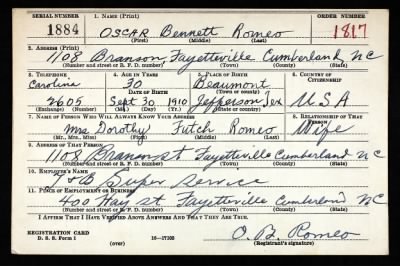 SERIAL NUMBER 1. NAME (Print) ORDER NUMBER
1884 OSCAR Bennett Romeo 1817
(First) (Middle) (Last)
2. ADDRESS (Print)
1108 Branson Fayetteville Cumberland NC
(Number and street or R. F. D. number) (Town) (County) (State)
3. TELEPHONE 4. AGE IN YEARS 5. PLACE OF BIRTH 6. COUNTRY OF CITIZENSHIP
Carolina 30 Beaumont
DATE OF BIRTH (Town or county)
2605 Sept 30 1910 Jefferson Tex U.S.A
(Exchange) (Number) (Mo.) (Day) (Yr.) (State or country)
7. NAME OF PERSON WHO WILL ALWAYS KNOW YOUR ADDRESS 8. RELATIONSHIP OF THAT PERSON
Mrs Dorothy Futch Romeo Wife
(Mr., Mrs., Miss) (First) (Middle) (Last)
9. ADDRESS OF THAT PERSON
1108 Branson st Fayetteville Cumberland NC
(Number and street or R. F. D. number) (Town) (County) (State)
10. EMPLOYER'S NAME
Super Service
11. PLACE OF EMPLOYMENT OR BUSINESS
400 Hay st Fayetteville Cumberland NC
(Number and street or R. F. D. number) (Town) (County) (State)
I AFFIRM THAT I HAVE VERIFIED ABOVE ANSWERS AND THAT THEY ARE TRUE.
REGISTRATION CARD O. B. Romeo
D. S. S. Form 1 (over) 16—17105 (Registrant's signature)